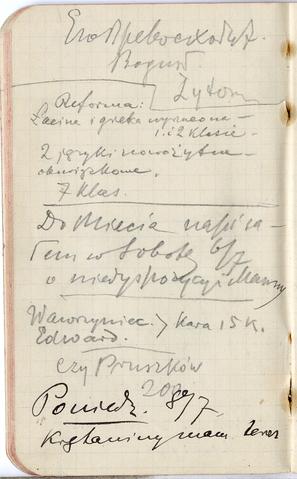 Ero Przewoschodyt.
Bogusł.
Żytom
Reforma:
Łacina i greka wyrzucona –
1. i 2 klasie –
2 języki nowożytne –
obowiązkowe.
7 klas.
Do Miecia napisa-
łem w Sobotę 6/7
o niedyspozycyi Mamy
Wawrzyniec } Kara 15 K.
Edward.
czy Pruszków
Poniedz. 8/7.
mam teraz